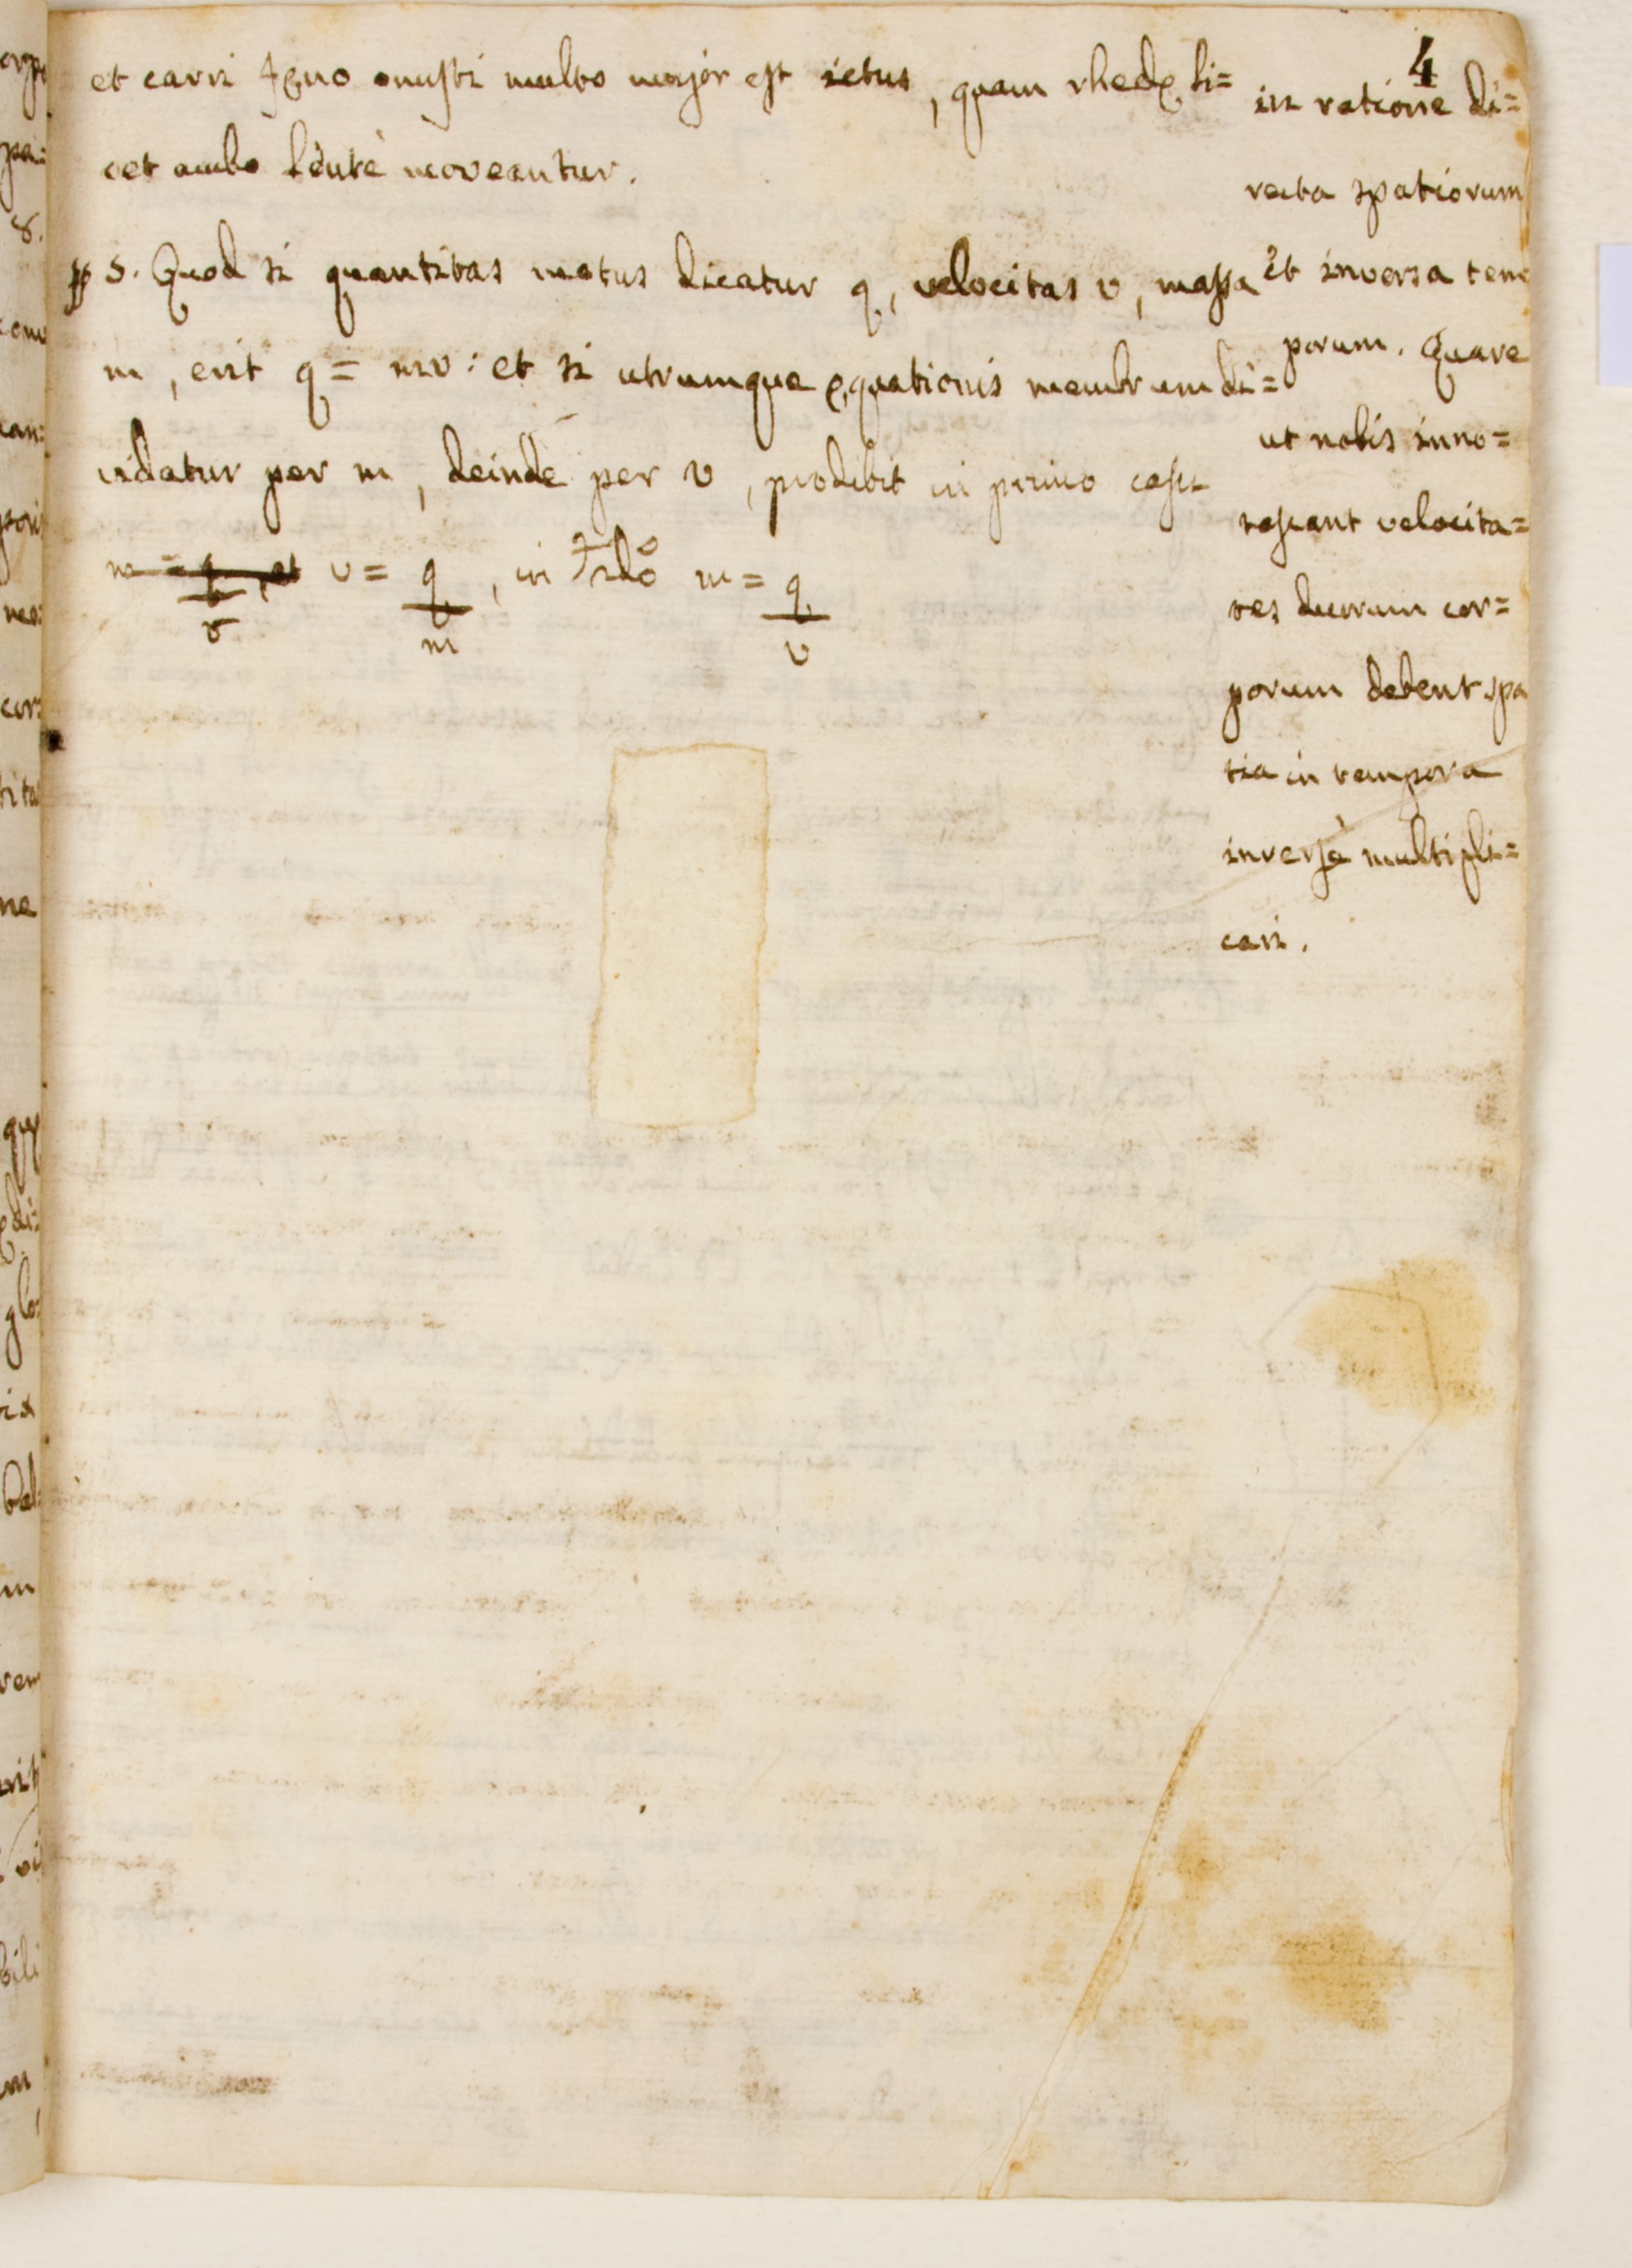 4
et carri fęno onusti multo major est ictus, quam rhedę li=
cet ambo lentè moveantur.
§ 5. Quod si quantitas motus dicatur q, velocitas v, massa
m, erit q = mv: et si utrumque ęquationis membrum di=
vidatur per m, deindè per v, prodibit in primo casu
m = q/v, et v = q/m, in 2do m = q/v
in ratione di=
recta spatiorum
et inversa tem
porum. Quare
ut nobis inno=
tescant velocita=
tes duorum cor=
porum debent spa
tia in tempora
inversè multipli=
cari.